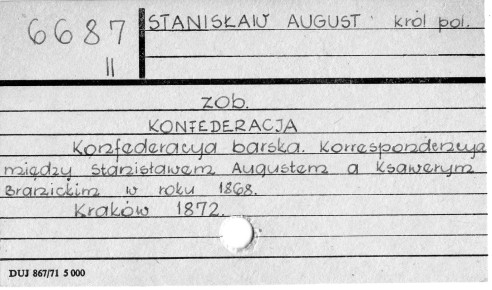 6687
II
STANISŁAW AUGUST król pol.
zob.
KONFEDERACJA
Konfederacya barska. Korrespondencya
między Stanisławem Augustem a Ksawerym
Branickim w roku 1868.
Kraków 1872.
DUJ 867/71 5 000